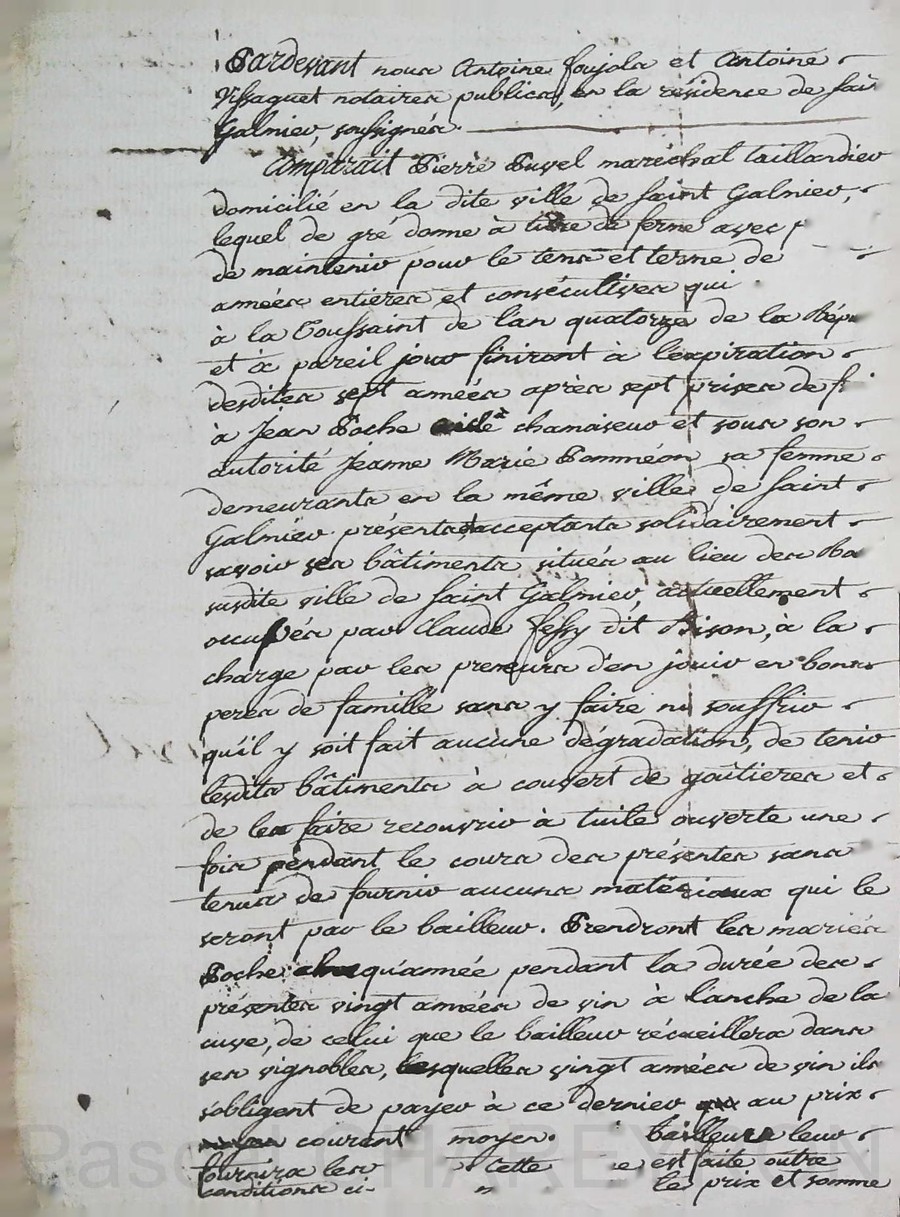 Pardevant nous Antoine Foujols et Antoine
Vissaguet notaires publics, en la résidence de sai
Galmier, soussignés.
Comparait Pierre Buvel maréchal taillandier
domicilié en la dite ville de saint Galmier,
lequel de gré donne à titre de ferme avec p
de maintenir pour le tems et terme de
années entieres et consécutives qui
à la Toussaint de l'an quatorze de la Répu
et à pareil jour finiront à l'expiration
desdites sept années après sept prises de f
à Jean Poche chamoiseur et sous son
autorité Jeanne Marie Pomméon sa femme
demeurants en la même ville de saint
Galmier présents acceptants solidairement
savoir ses bâtiments situés au lieu des
susdite ville de saint Galmier actuellement
occupés par Claude Fessy dit Bison, à la
charge par les preneurs d'en jouir en bons
peres de famille sans y faire ni souffrir
qu'il y soit fait aucune dégradation, de tenir
lesdits bâtiments à couvert de goûtieres et
de les faire recouvrir à tuile ouverte une
fois pendant le cours des présentes sans
tenus de fournir aucuns matériaux qui le
seront par le bailleur. Prendront les mariés
Poche qu'année pendant la durée des
présentes vingt années de vin à l'anche de la
cuve, de celui que le bailleur récueillera dans
ses vignobles, lesquelles vingt années de vin ils
s'obligent de payer à ce dernier au prix
courant moyen. bailleur leur
fournira les Cette est faite outre
conditions ci- le prix et somme
Pascal CHAREYRON